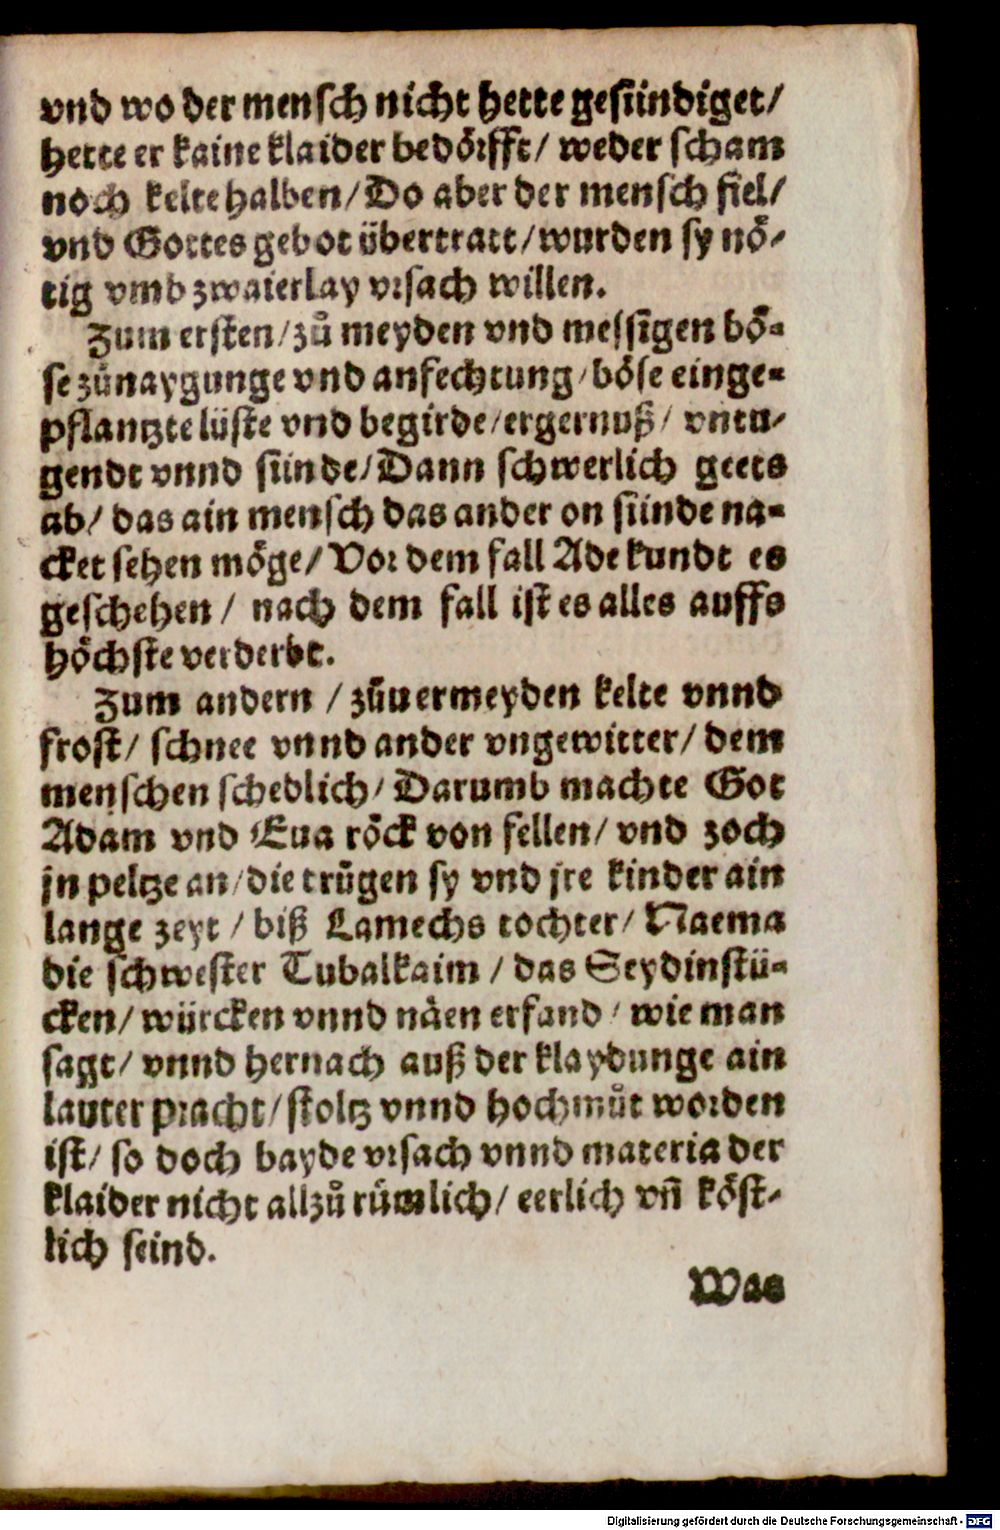 vnd wo der mensch nicht hette gesündiget/
hette er kaine klaider bedörfft/ weder scham
noch kelte halben/ Do aber der mensch fiel/
vnd Gottes gebot übertratt/ wurden sy nö-
tig vmb zwaierlay vrsach willen.
Zum ersten/ zů meyden vnd messigen bö-
se zůnaygunge vnd anfechtung/ böse einge-
pflantzte lüste vnd begirde/ ergernuß/ vntu-
gendt vnnd sünde/ Dann schwerlich geets
ab/ das ain mensch das ander on sünde na-
cket sehen möge/ Vor dem fall Ade kundt es
geschehen/ nach dem fall ist es alles auffs
höchste verderbt.
Zum andern / zůuermeyden kelte vnnd
frost/ schnee vnnd ander vngewitter/ dem
menschen schedlich/ Darumb machte Got
Adam vnd Eua röck von fellen/ vnd zoch
jn peltze an/ die trůgen sy vnd jre kinder ain
lange zeyt / biß Lamechs tochter/ Naema
die schwester Tubalkaim / das Seydinstü-
cken/ würcken vnnd näen erfand / wie man
sagt/ vnnd hernach auß der klaydunge ain
lauter pracht/ stoltz vnnd hochmůt worden
ist/ so doch bayde vrsach vnnd materia der
klaider nicht allzů růmlich/ eerlich vñ köst-
lich seind.
Was
Digitalisierung gefördert durch die Deutsche Forschungsgemeinschaft - DFG